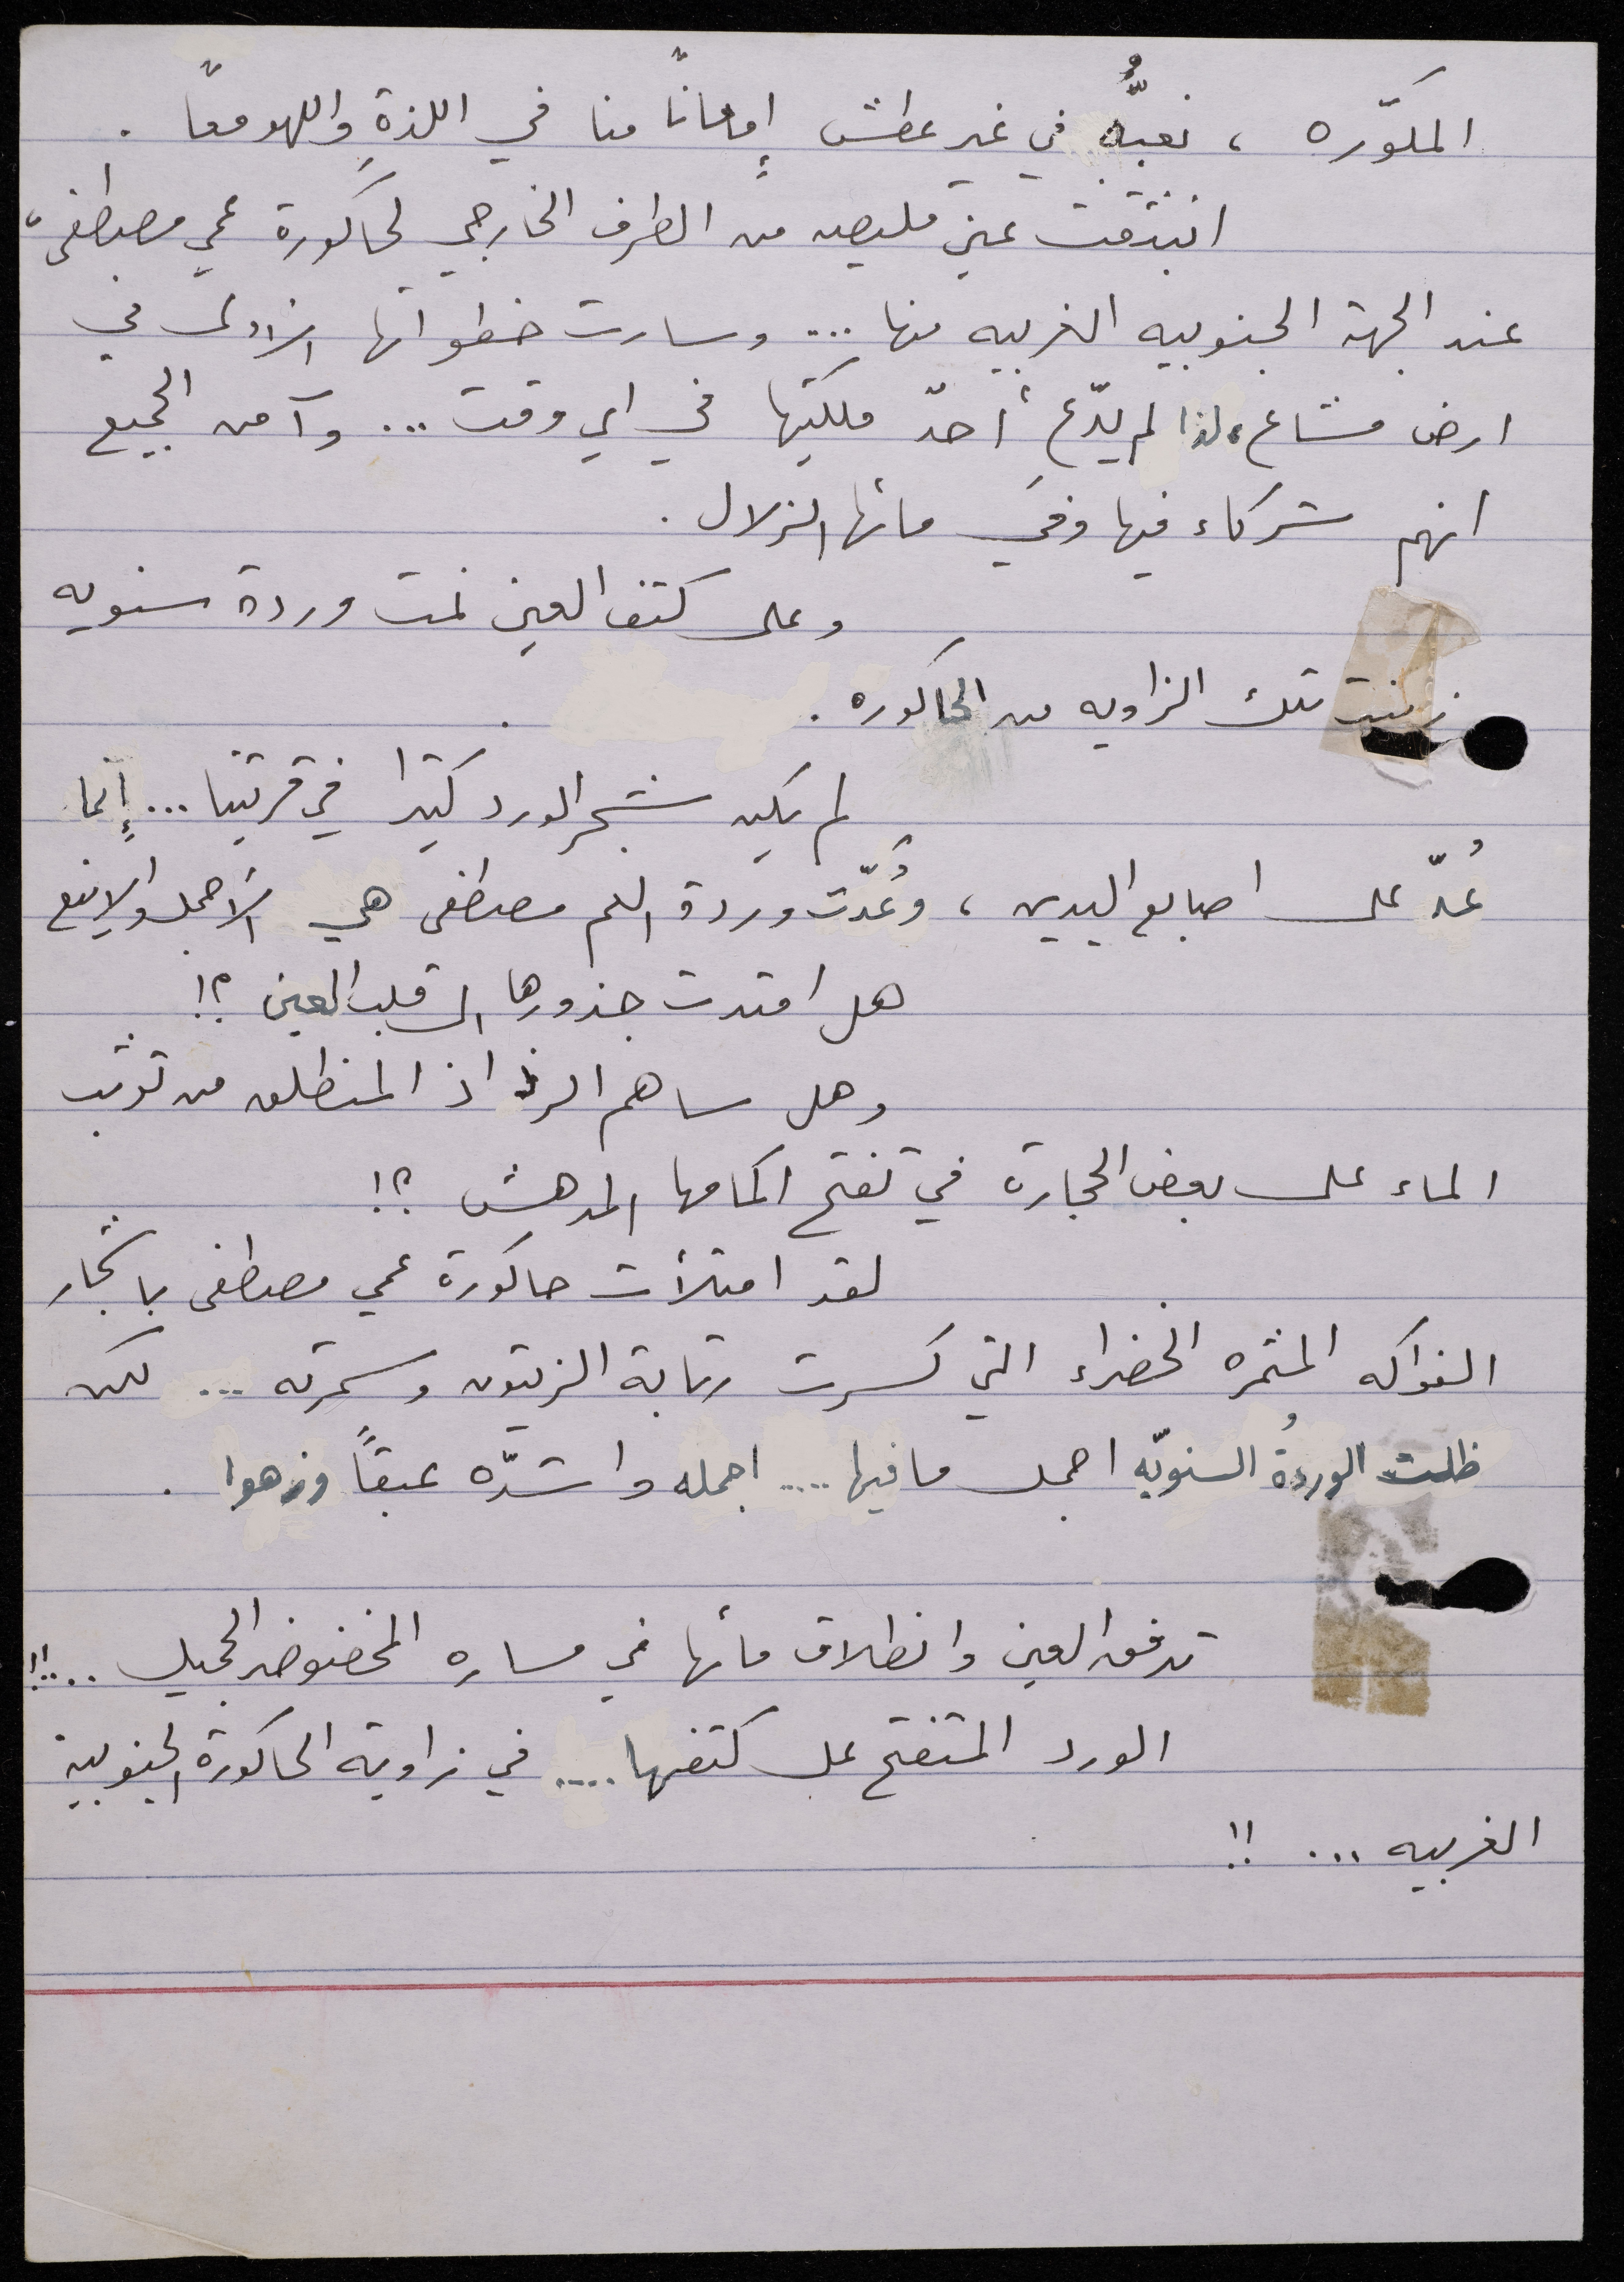 المكوّره ، نعبُّه في غير عطش إمعاناً منا في اللذةِ واللهو معاً .
انبثقت عين قليصه من الطرف الخارجي لحاكورة عمي مصطفى،
عند الجهة الجنوبيه الغربيه منها .... وسارت خطواتها الأولى في
ارض مشاع، لذا لم يدّع أحدّ ملكيتها في اي وقت ... وآمن الجميع
انهم شركاء فيها وفي مائها الزلال .
وعلى كتف العين نمت وردة سنويه
زينت تلك الزاويه من الحاكوره .
لم يكن شجر الورد كثيرا في قريتنا ... إنما
عُدّ على اصابع اليدين ، وعُدّت وردة العم مصطفى هي الأجمل والاينع
هل امتدت جذورها الى قلب العين ؟!
وهل ساهم الرذاذ المنطلق من توثب
الماء على بعض الحجارة في تفتح اكمامها المدهش ؟!
لقد امتلأت حاكورة عمي مصطفى باشجار
الفواكه المثمره الخضراء التي كسرت رتابة الزيتون وسمرته ... لكن
ظلت الوردةُ السنويّه اجمل ما فيها .... اجمله واشدّه عبقاً وزهوا .
تدفق العين وانطلاق مائها في مساره المخضوضر الجميل .....!!
الورد المتفتح على كتفها ..... في زاوية الحاكورة الجنوبية
الغربيه ... !!